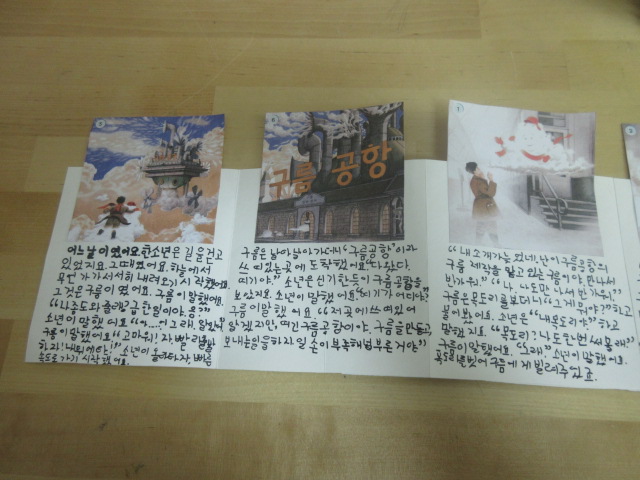 구름 공항
어느 날이었어요. 한 소년은 길을 걷고
있었지요. 그때였어요. 하늘에서
무언가가 서서히 내려오기 시작했어요.
그것은 구름이었어요. 구름이 말했어요.
소년이 말했어요
구름이 말했어요 "고마워! 자, 빨리
하자! 내 뒤에 타!" 소년이 타자, 빠른
속도로 가기 시작했어요.
구름은 날아 날아가더니 "구름공항"이라
쓰여있는 곳에 도착했어요
"여기야." 소년은 신기한듯이 구름공항을
보았지요. 소년이 말했어요 "여기가 어디야?"
구름이 말했어요 "저곳에 쓰여있어
알겠지만, 여긴 구름공항이야. 구름을 만들고,
보내는 일을 하지 일손이 부족해 널 부른거야"
"내 소개가 늦었네, 난 이 구름공항의
구름 제작을 맡고 있는 구름이야 만나서
반가워." "나, 나도 만나서 반가워"
구름은 목도리를 보더니 "그게 뭐야?"하고
물어 봤어요. 소년은 "내 목도리야"하고
말했지요 "목도리? 나도 한번 써볼래"
구름이 말했어요. "그래" 소년이 말했어요.
목도리를 벗어 구름에게 빌려주었죠